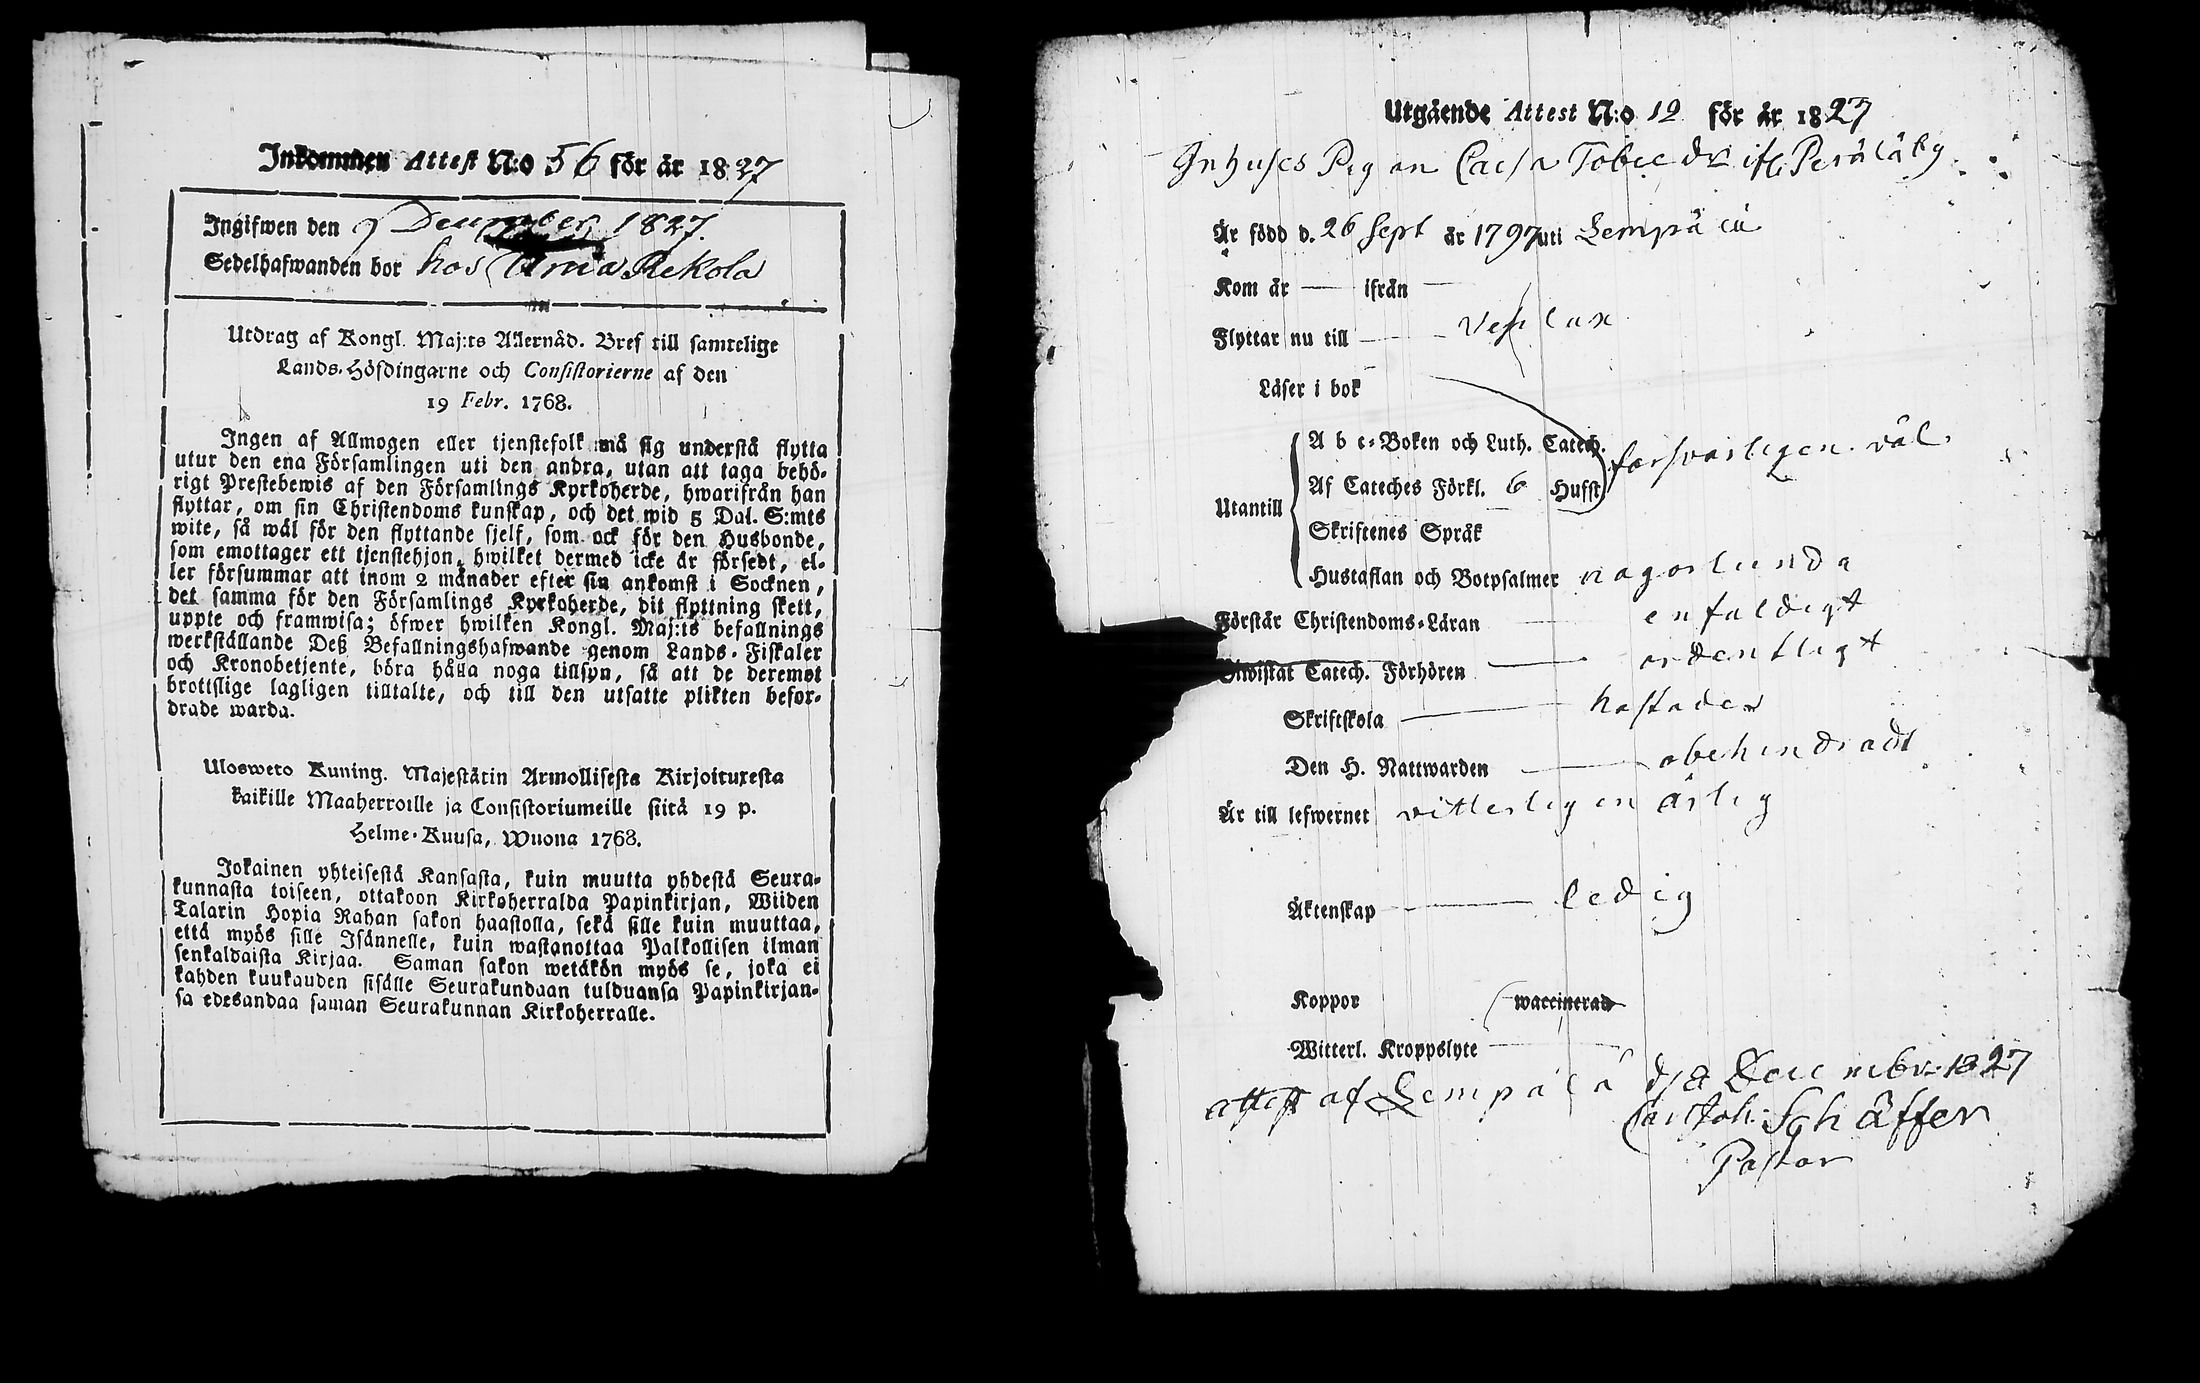 Inkommen Attest N:o 56 för år 1827
Ingifwen den 9 December 1827.
Sedelhafwanden bor hos Anna Rekola
Utdrag af Kongl. Maj:ts Allernåd. Bref till samtelige
Lands-Höfdingarne och Consistorierne af den
19 Febr. 1768.
Ingen af Allmogen eller tjenstefolk må sig understå flytta
utur den ena Församlingen uti den andra, utan att taga behö-
rigt Prestebewis af den Församlings Kyrkoherde, hwarifrån han
flyttar, om sin Christendoms kunskap, och det wid 5 Dal. S:mts
wite, så wäl för den flyttande sjelf, som ock för den Husbonde,
som emottager ett tjenstehjon, hwilket dermed icke är försedt, el-
ler försummar att inom 2 månader efter sin ankomst i Socknen,
det samma för den Församlings Kyrkoherde, dit flyttning skett,
uppte och framwisa; öfwer hwilken Kongl. Maj:ts befallnings
werkställande Deß Befallningshafwande genom Lands-Fiskaler
och Kronobetjente, böra hålla noga tillsyn, så att de deremot
brottslige lagligen tilltalte, och till den utsatte plikten befor-
drade warda.
Ulosweto Kuning. Majestätin Armollisesta Kirjoituxesta
kaikille Maaherroille ja Consistoriumeille siitä 19 p.
Helme-Kuusa, Wuona 1768.
Jokainen yhteisestä Kansasta, kuin muutta yhdestä Seura-
kunnasta toiseen, ottakoon Kirkoherralda Papinkirjan, Wiiden
Talarin Hopia Rahan sakon haastolla, sekä sille kuin muuttaa,
että myös sille Isännelle, kuin wastanottaa Palkollisen ilman
senkaldaista Kirjaa. Saman sakon wetäkön myös se, joka ei
kahden kuukauden sisälle Seurakundaan tulduansa Papinkirjan-
sa edesandaa saman Seurakunnan Kirkoherralle.
Utgående Attest N:o 12 för år 1827
Inhuses Pigan Caisa Tobie dr ifr. Peräläby
Är född d. 26 Sept år 1797 uti Lempäälä
Kom år — ifrån —
Flyttar nu till — Vesilax
Läser i bok
Utantill
A b c-Boken och Luth. Catech.
försvarligen väl.
Af Cateches Förkl. 6 Hufst
Skriftenes Språk
Hustaflan och Botpsalmer någorlunda
Förstår Christendoms-Läran — enfaldigt
Biwistat Catech. Förhören — ordentligt
Skriftskola —
Den H. Nattwarden — obehindradt
Är till lefwernet vitterligen ärlig
Äktenskap — ledig
Koppor waccinerad
Witterl. Kroppslyte —
attest af Lempälä d 8 Decembr 1827
Joh: Schäffer
Pastor